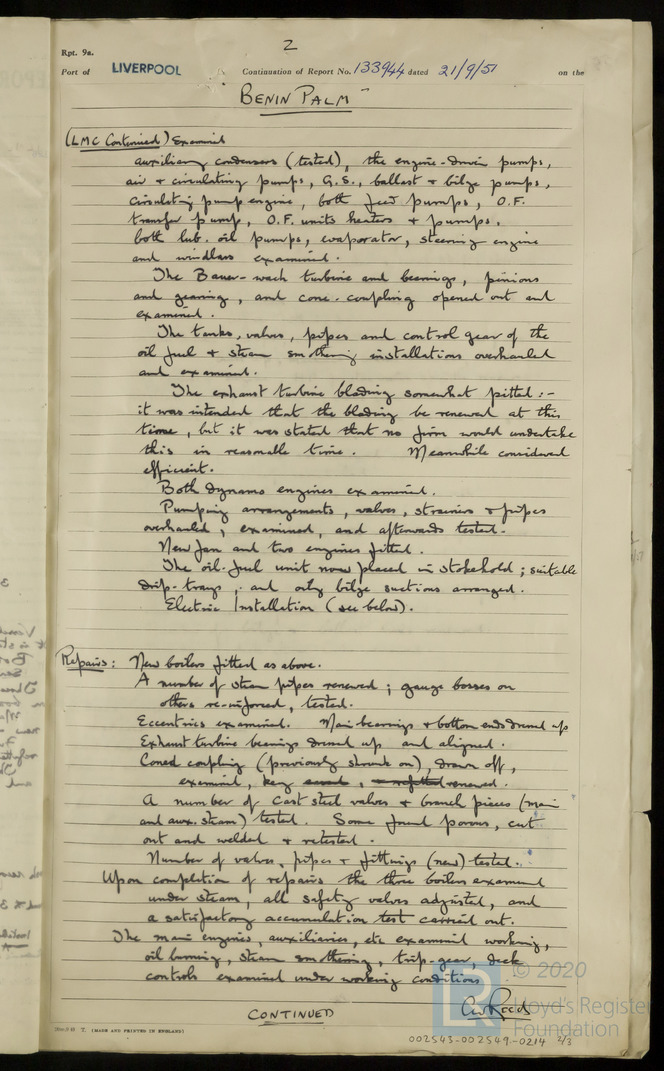 2
Rpt. 9a.
Port of LIVERPOOL Continuation of Report No. 133944 dated 21/9/51 on the
"BENIN PALM"
(LMC Continued) Examined
auxiliary condensers (tested), the engine-driven pumps,
air & circulating pumps, G.S., ballast & bilge pumps,
circulating pump engine, both feed pumps, O.F.
transfer pump, O.F. units heaters & pumps,
both lub. oil pumps, evaporator, steering engine
and windlass examined.
The Bauer-Wach turbine and bearings, pinions
and gearing, and cone-coupling opened out and
examined.
The tanks, valves, pipes and control gear of the
oil fuel & steam smothering installations overhauled
and examined.
The exhaust turbine blading somewhat pitted:-
it was intended that the blading be renewed at this
time, but it was stated that no firm would undertake
this in reasonable time. Meanwhile considered
efficient.
Both dynamo engines examined.
Pumping arrangements, valves, strainers & pipes
overhauled, examined, and afterwards tested.
New fan and two engines fitted.
The oil-fuel unit now placed in stokehold; suitable
drip-trays, and oily bilge suctions arranged.
Electric Installation (see below).
Repairs: New boilers fitted as above.
A number of steam pipes renewed; gauge bosses on
others re-inforced, tested.
Eccentrics examined. Main bearings & bottom ends dressed up
Exhaust turbine bearings dressed up and aligned.
Coned coupling (previously shrunk on), drawn off,
examined, key renewed.
A number of cast steel valves & branch pieces (main
and aux. steam) tested. Some found porous, cut
out and welded & retested.
Number of valves, pipes & fittings (new) tested.
Upon completion of repairs the three boilers examined
under steam, all safety valves adjusted, and
a satisfactory accumulation test carried out.
The main engines, auxiliaries, etc examined working,
oil burning, steam smothering, trip-gear, deck
controls examined under working conditions
CONTINUED
(MADE AND PRINTED IN ENGLAND)
© 2020
Lloyd's Register
Foundation
002543-002549-0214 2/3